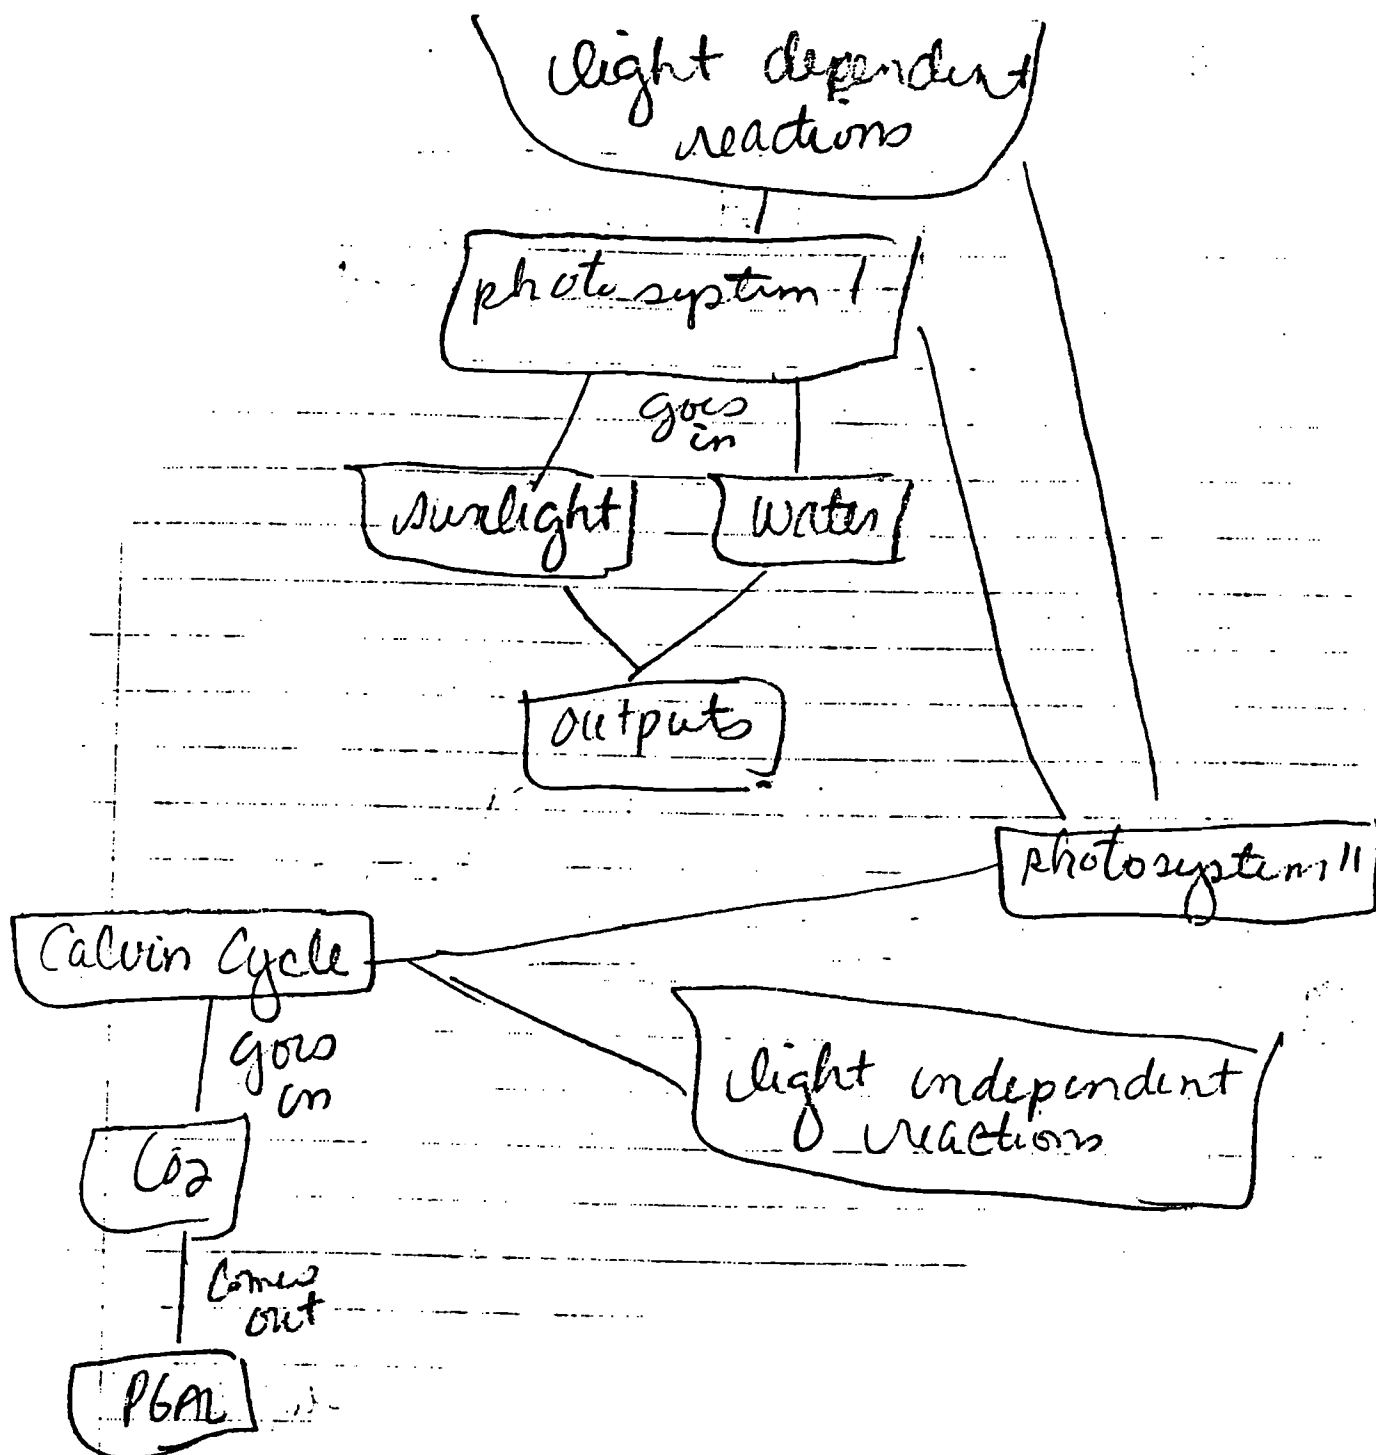 light dependent
reactions
photosystem I
goes
in
sunlight
water
outputs
photosystem II
Calvin Cycle
goes
in
light independent
reactions
CO2
Comes
out
PGAL